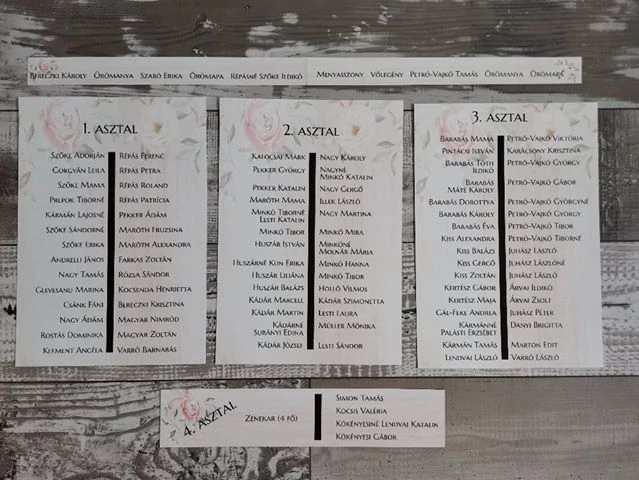 Bereczki Károly Örömanya Szabó Erika Örömapa Répásné Szőke Ildikó Menyasszony Vőlegény Petró-Vajkó Tamás Örömanya Örömapa
1. ASZTAL
Szőke Adorján Répás Ferenc
Gorgyán Leira Répás Petra
Szőke Mama Répás Roland
Prepok Tiborné Répás Patrícia
Kármán Lajosné Pekker Ádám
Szőke Sándorné Maróth Fruzsina
Szőke Erika Maróth Alexandra
Andrelli János Farkas Zoltán
Nagy Tamás Rózsa Sándor
Glevesanu Marina Kocsenda Henrietta
Csánk Fáni Bereczki Krisztina
Nagy Ádám Magyar Nimród
Rostás Dominika Magyar Zoltán
Klement Angéla Varró Barnabás
2. ASZTAL
Kalocsai Márk Nagy Károly
Pekker György Nagyné
Minkó Katalin
Pekker Katalin Nagy Gergő
Maróth Mama Illek László
Minkó Tiborné Nagy Martina
Lesti Katalin
Minkó Tibor Minkó Mira
Huszár István Minkóné
Molnár Mária
Huszárné Kun Erika Minkó Hanna
Huszár Liliána Minkó Tibor
Huszár Balázs Holló Vilmos
Kádár Marcell Kádár Szimonetta
Kádár Martin Lesti Laura
Kádárné Müller Mónika
Surányi Edina
Kádár József Lesti Sándor
3. ASZTAL
Barabás Mama Petró-Vajkó Viktória
Pintácsi István Karácsony Krisztina
Barabás Tóth Petró-Vajkó György
Ildikó
Barabás Petró-Vajkó Gábor
Máté Károly
Barabás Dorottya Petró-Vajkó Györgyné
Barabás Károly Petró-Vajkó György
Barabás Éva Petró-Vajkó Tibor
Kiss Alexandra Petró-Vajkó Tiborné
Kiss Balázs Juhász László
Kiss Gergő Juhász Lászlóné
Kiss Zoltán Juhász László
Kertész Gábor Árvai Ildikó
Kertész Maja Árvai Zsolt
Gál-Feki Andrea Juhász Péter
Kármánné Danyi Brigitta
Palásti Erzsébet
Kármán Tamás Marton Edit
Lendvai László Varró László
4. ASZTAL
Zenekar (4 fő)
Simon Tamás
Kocsis Valéria
Kökényesiné Lendvai Katalin
Kökényesi Gábor